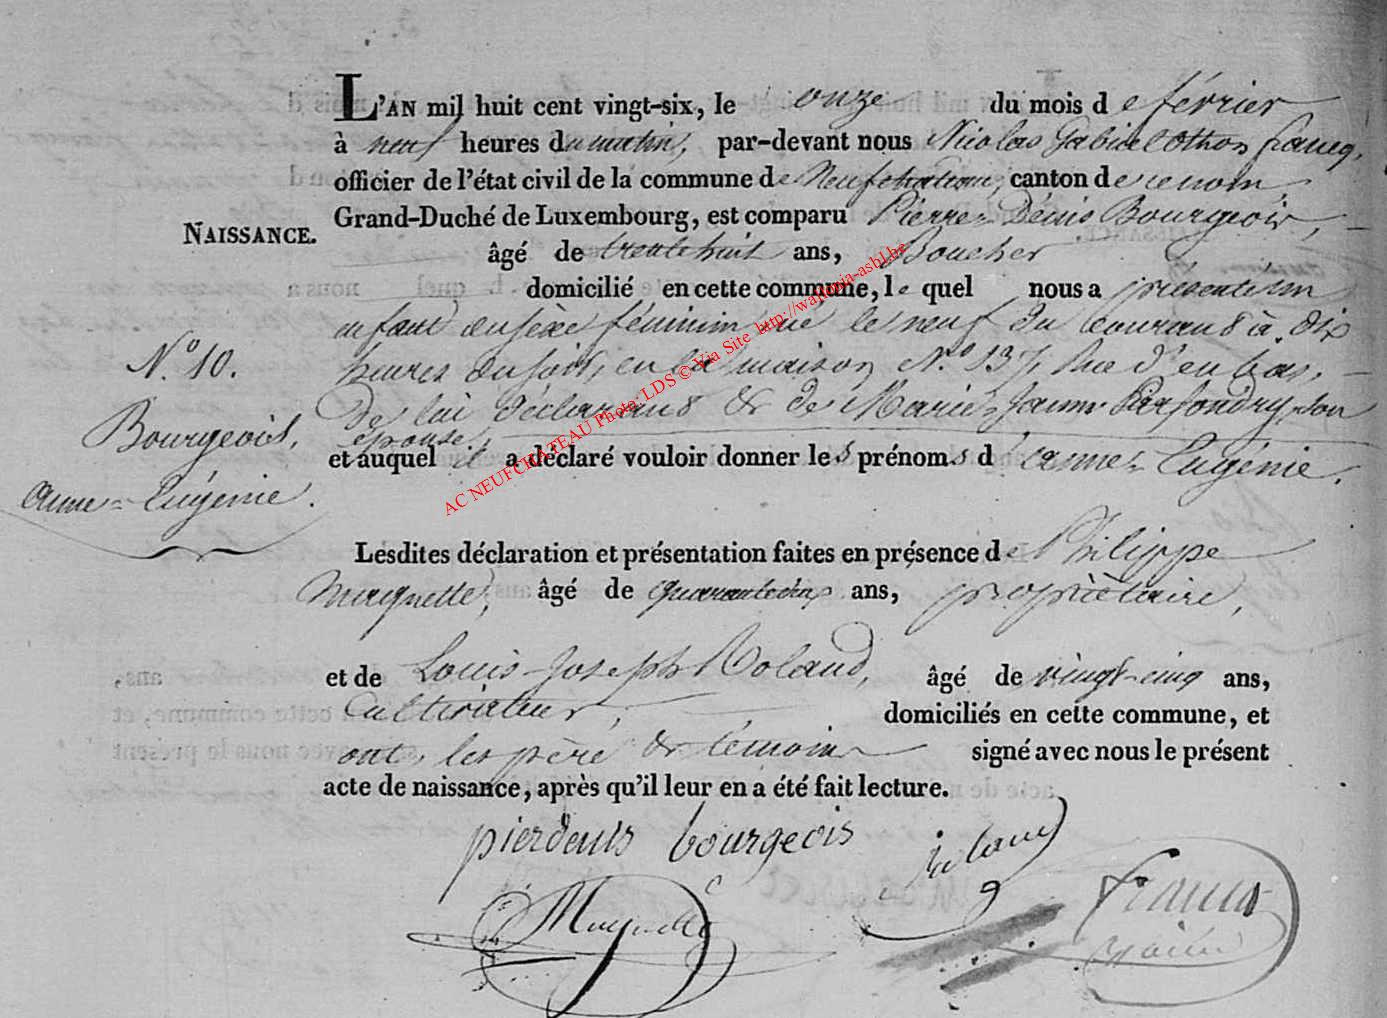 L'AN mil huit cent vingt-six, le onze du mois de février
à neuf heures du matin, par-devant nous Nicolas Gabriel Othon Francq,
officier de l'état civil de la commune de Neufchateau, canton de ce nom,
Grand-Duché de Luxembourg, est comparu Pierre-Denis Bourgeois,
NAISSANCE.
âgé de trente huit ans, Boucher
domicilié en cette commune, le quel nous a présenté un
enfant du sexe féminin né le neuf du courant à dix
heures du soir, en la maison N.o 137, Rue d'en bas,
N.o 10.
de lui déclarant & de Marie-Jeanne Parfondry, son
épouse,
Bourgeois,
et auquel il a déclaré vouloir donner les prénoms d'anne-Eugénie.
Anne-Eugénie.
Lesdites déclaration et présentation faites en présence de Philippe
Maquette, âgé de quarante cinq ans, propriètaire,
et de Louis-Joseph Roland, âgé de vingt-cinq ans,
Cultivateur, domiciliés en cette commune, et
ont, les père & témoins signé avec nous le présent
acte de naissance, après qu'il leur en a été fait lecture.
pierdenis bourgeois
AC NEUFCHATEAU Photo: LDS © Via Site http://wallonia-asbl.be